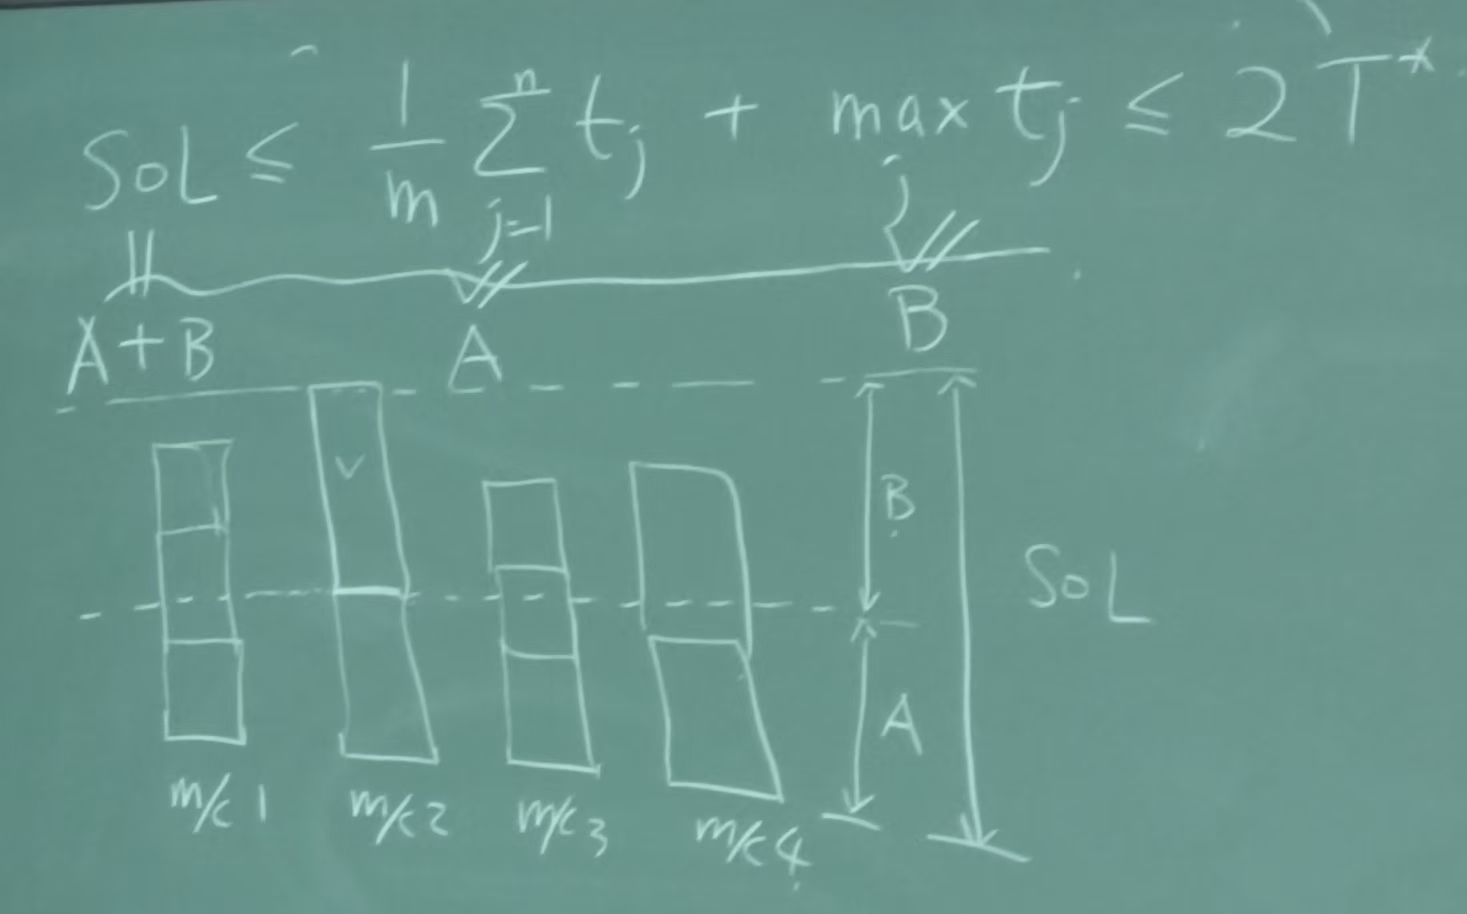 SOL ≤ 1/m Σ_{j=1}^{n} t_j + max_j t_j ≤ 2T*
A+B A B
B
SOL
A
m/c 1 m/c 2 m/c 3 m/c 4